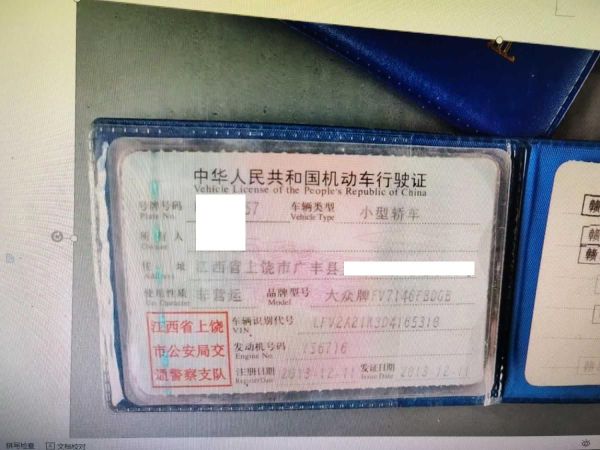 中华人民共和国机动车行驶证
Vehicle License of the People's Republic of China
号牌号码 57 车辆类型 小型轿车
Plate No. Vehicle Type
所有人
Owner
住 址 江西省上饶市广丰县
使用性质 非营运 品牌型号 大众牌FV7146FBDGB
Use Character Model
江西省上饶
市公安局交
通警察支队
车辆识别代号 LFV2A21K3D4165318
VIN
发动机号码 T36716
Engine No.
注册日期 2013-12-11 发证日期 2013-12-11
Register Date Issue Date
赣
赣
赣
赣
拼写检查 文档校对